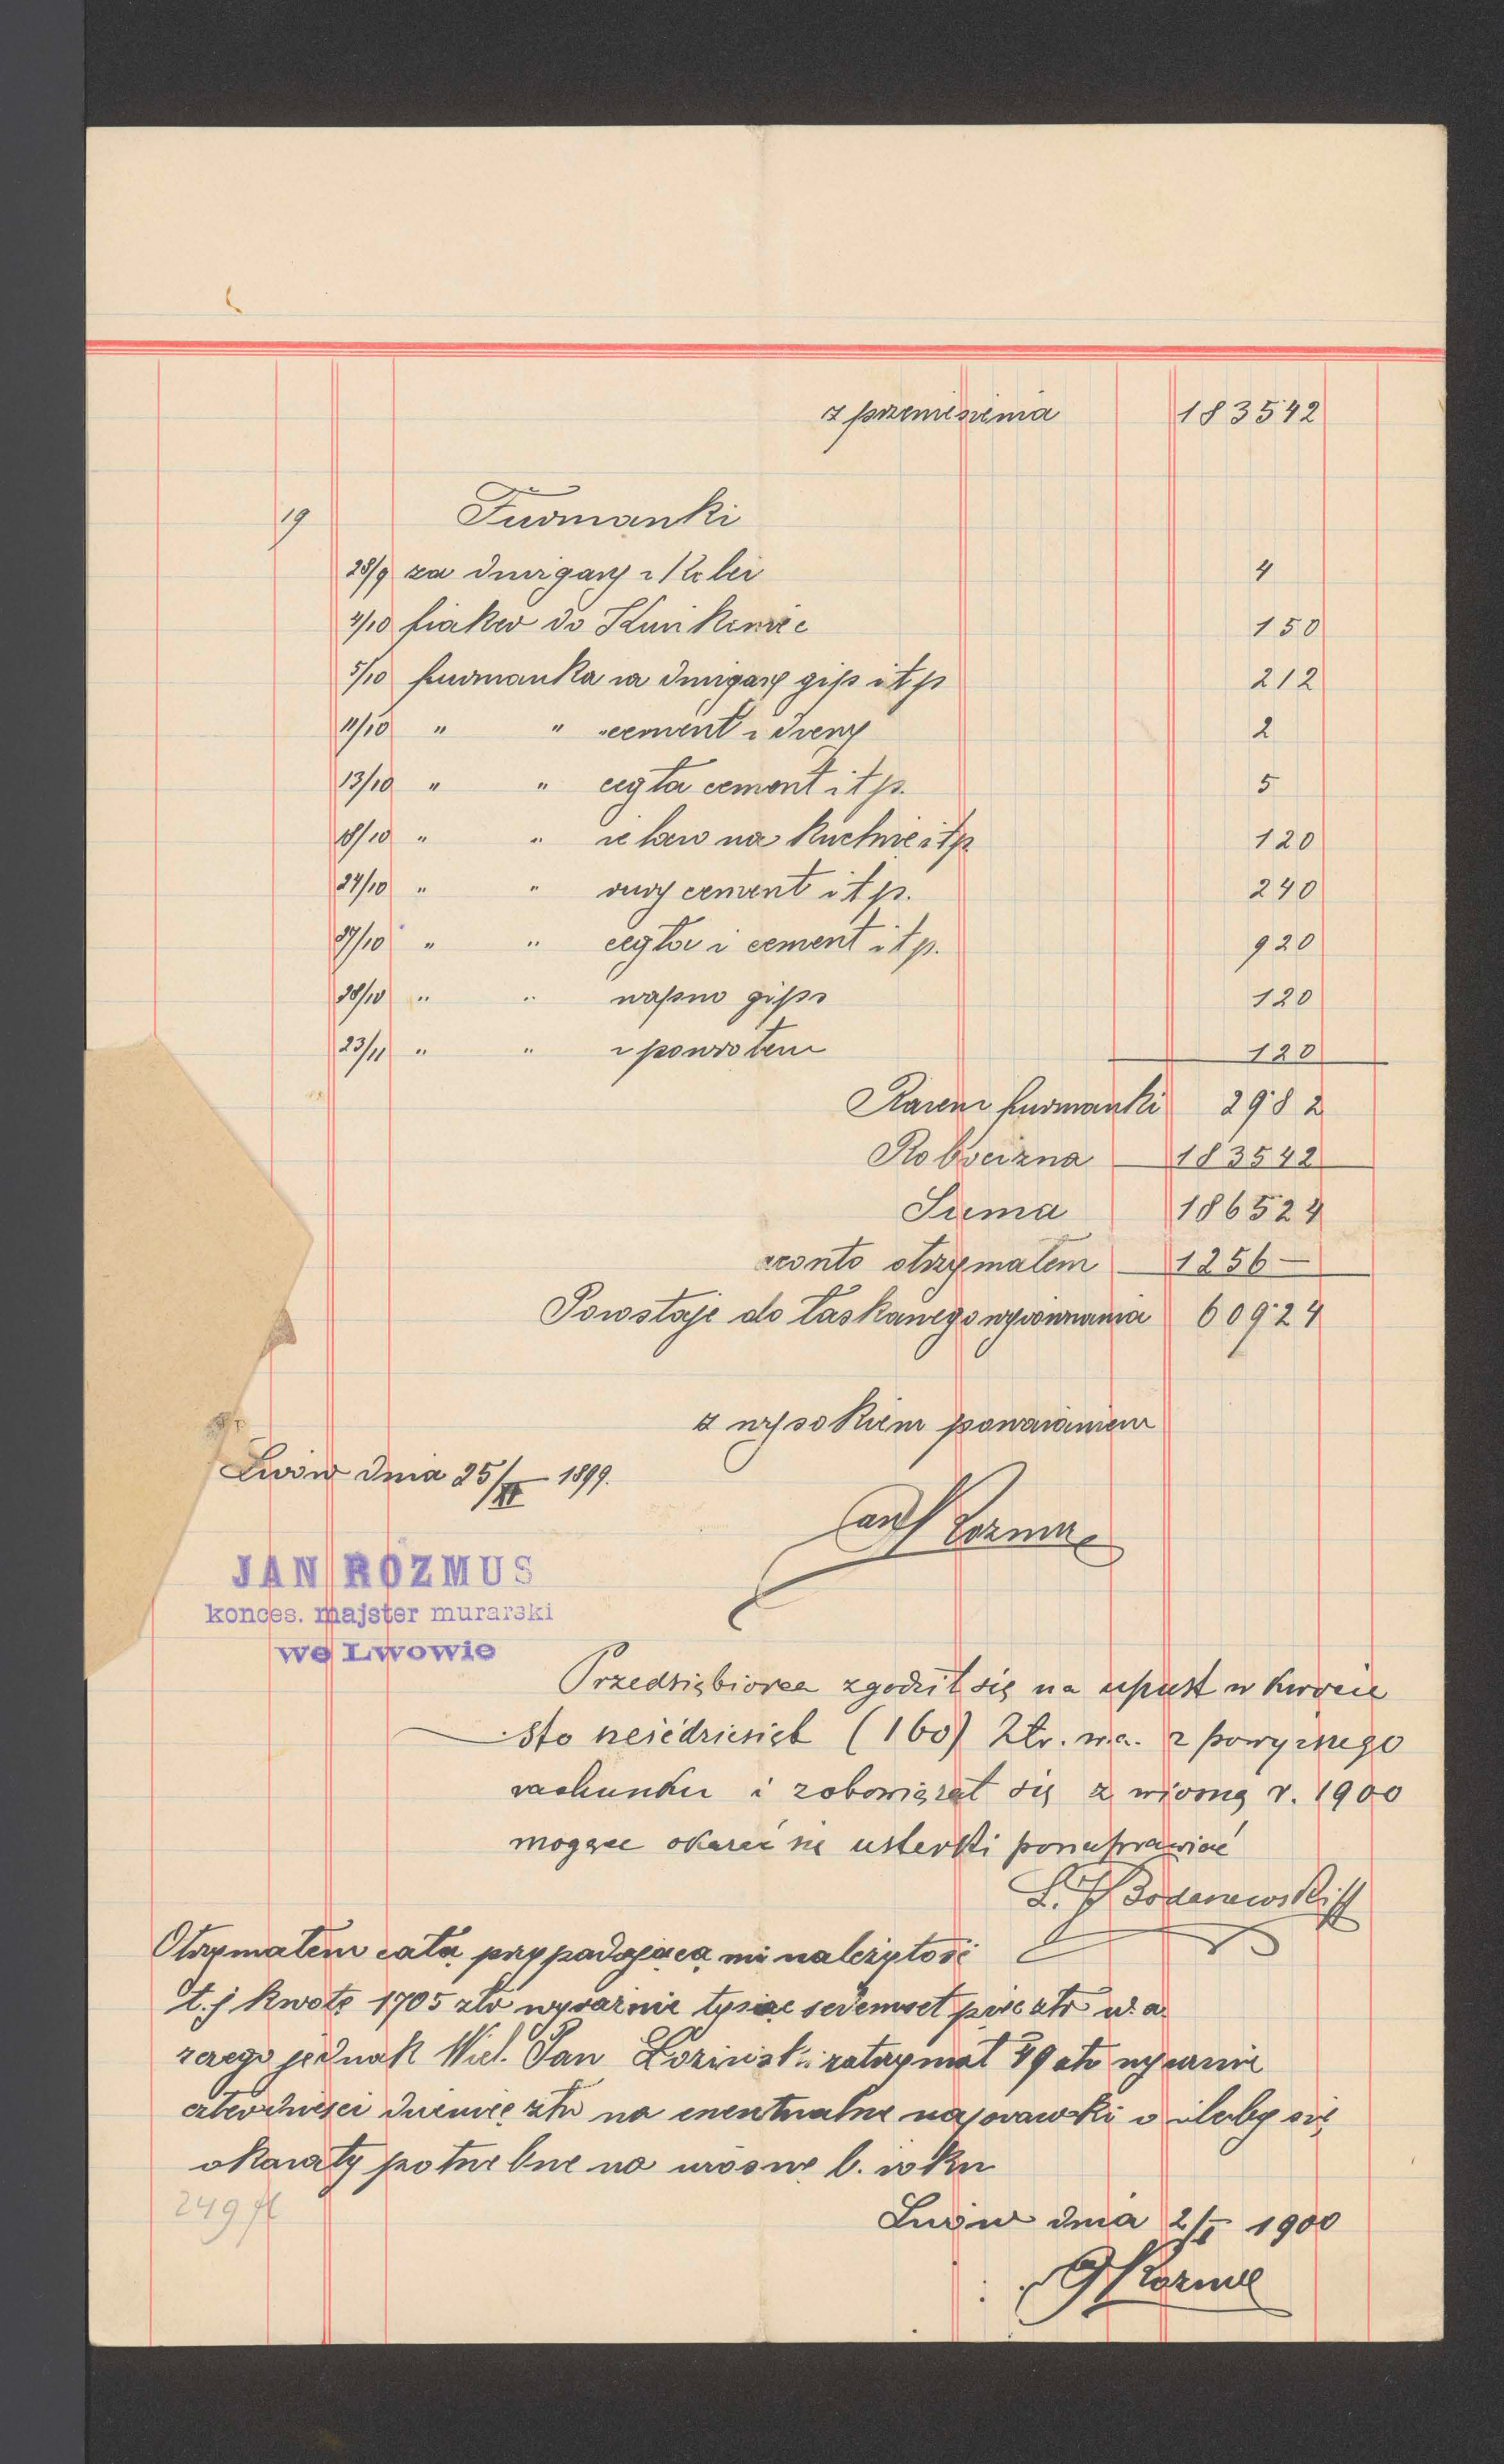 z przeniesienia 183542
19 Furmanki
28/9 za dźwigary z Kolei 4
4/10 fiaker do 150
5/10 furmanka za dźwigary gips itp 212
11/10 " " cement i dreny 2
13/10 " " cegła cement itp. 5
18/10 " " żelazo na Kuchnie itp 120
24/10 " " rury cement itp. 240
27/10 " " cegła i cement itp. 920
28/10 " " wapno gips 120
23/11 " " z powrotem 120
Razem furmanki 2982
Robocizna 183542
Suma 186524
aconto otrzymałem 1256 —
Powstaje do łaskawego wyrównania 60924
z wysokiem poważaniem
Lwów dnia 25/XI 1899.
Jan Rozmus
JAN ROZMUS
konces. majster murarski
we Lwowie
Przedsiębiorca zgodził się na upust w kwocie
sto sześćdziesiąt (160) Złr. w.a. z powyższego
rachunku i zobowiązał się z wiosną r. 1900
mogące okazać się usterki ponaprawiać
Otrzymałem całą przypadającą mi należytość
t.j kwotę 1705 złr wyraźnie tysiąc siedemset pięć złr w.a.
z czego jednak Wiel. Pan Łoziński zatrzymał 49 złr wyraźnie
czterdzieści dziewięć złr na ewentualne naprawki o ileby się
okazały potrzebne na wiosnę b. roku
249 fl
Lwów dnia 2/I 1900
JRozmus